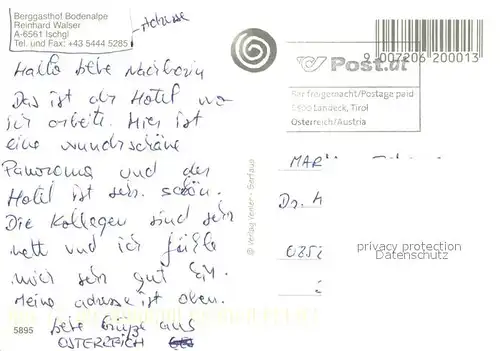 Berggasthof Bodenalpe
Reinhard Walser
A-6561 Ischgl
Tel. und Fax: +43 5444 5285
Adresse
Hallo liebe Nachbarin
Das ist der Hotel wo
ich arbeite. Hier ist
eine wunderschöne
Panorama und der
Hotel ist sehr schön.
Die Kollegen sind sehr
nett und ich fühle
mich sehr gut hier.
Meine adresse ist oben.
liebe Grüße aus
ÖSTERREICH
5895
© Verlag Serfaus
Post.at
9 007206 200013
Bar freigemacht/Postage paid
6500 Landeck, Tirol
Österreich/Austria
Dr.
privacy protection
Datenschutz